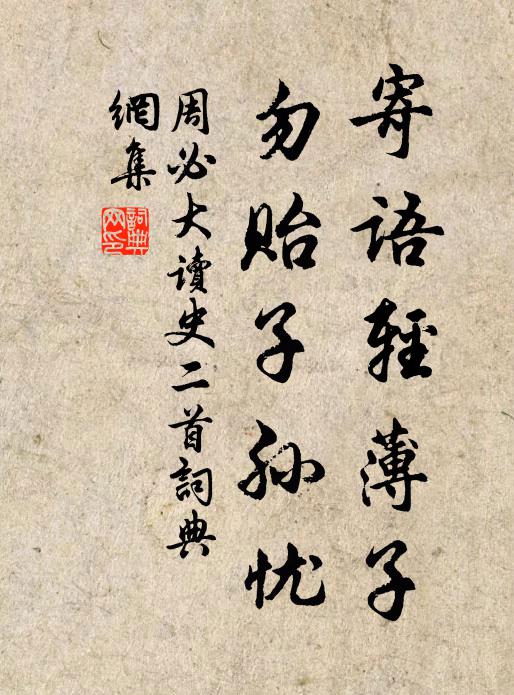 寄语轻薄子
勿贻子孙忧
周必大读史二首词典
网集
词典
网印